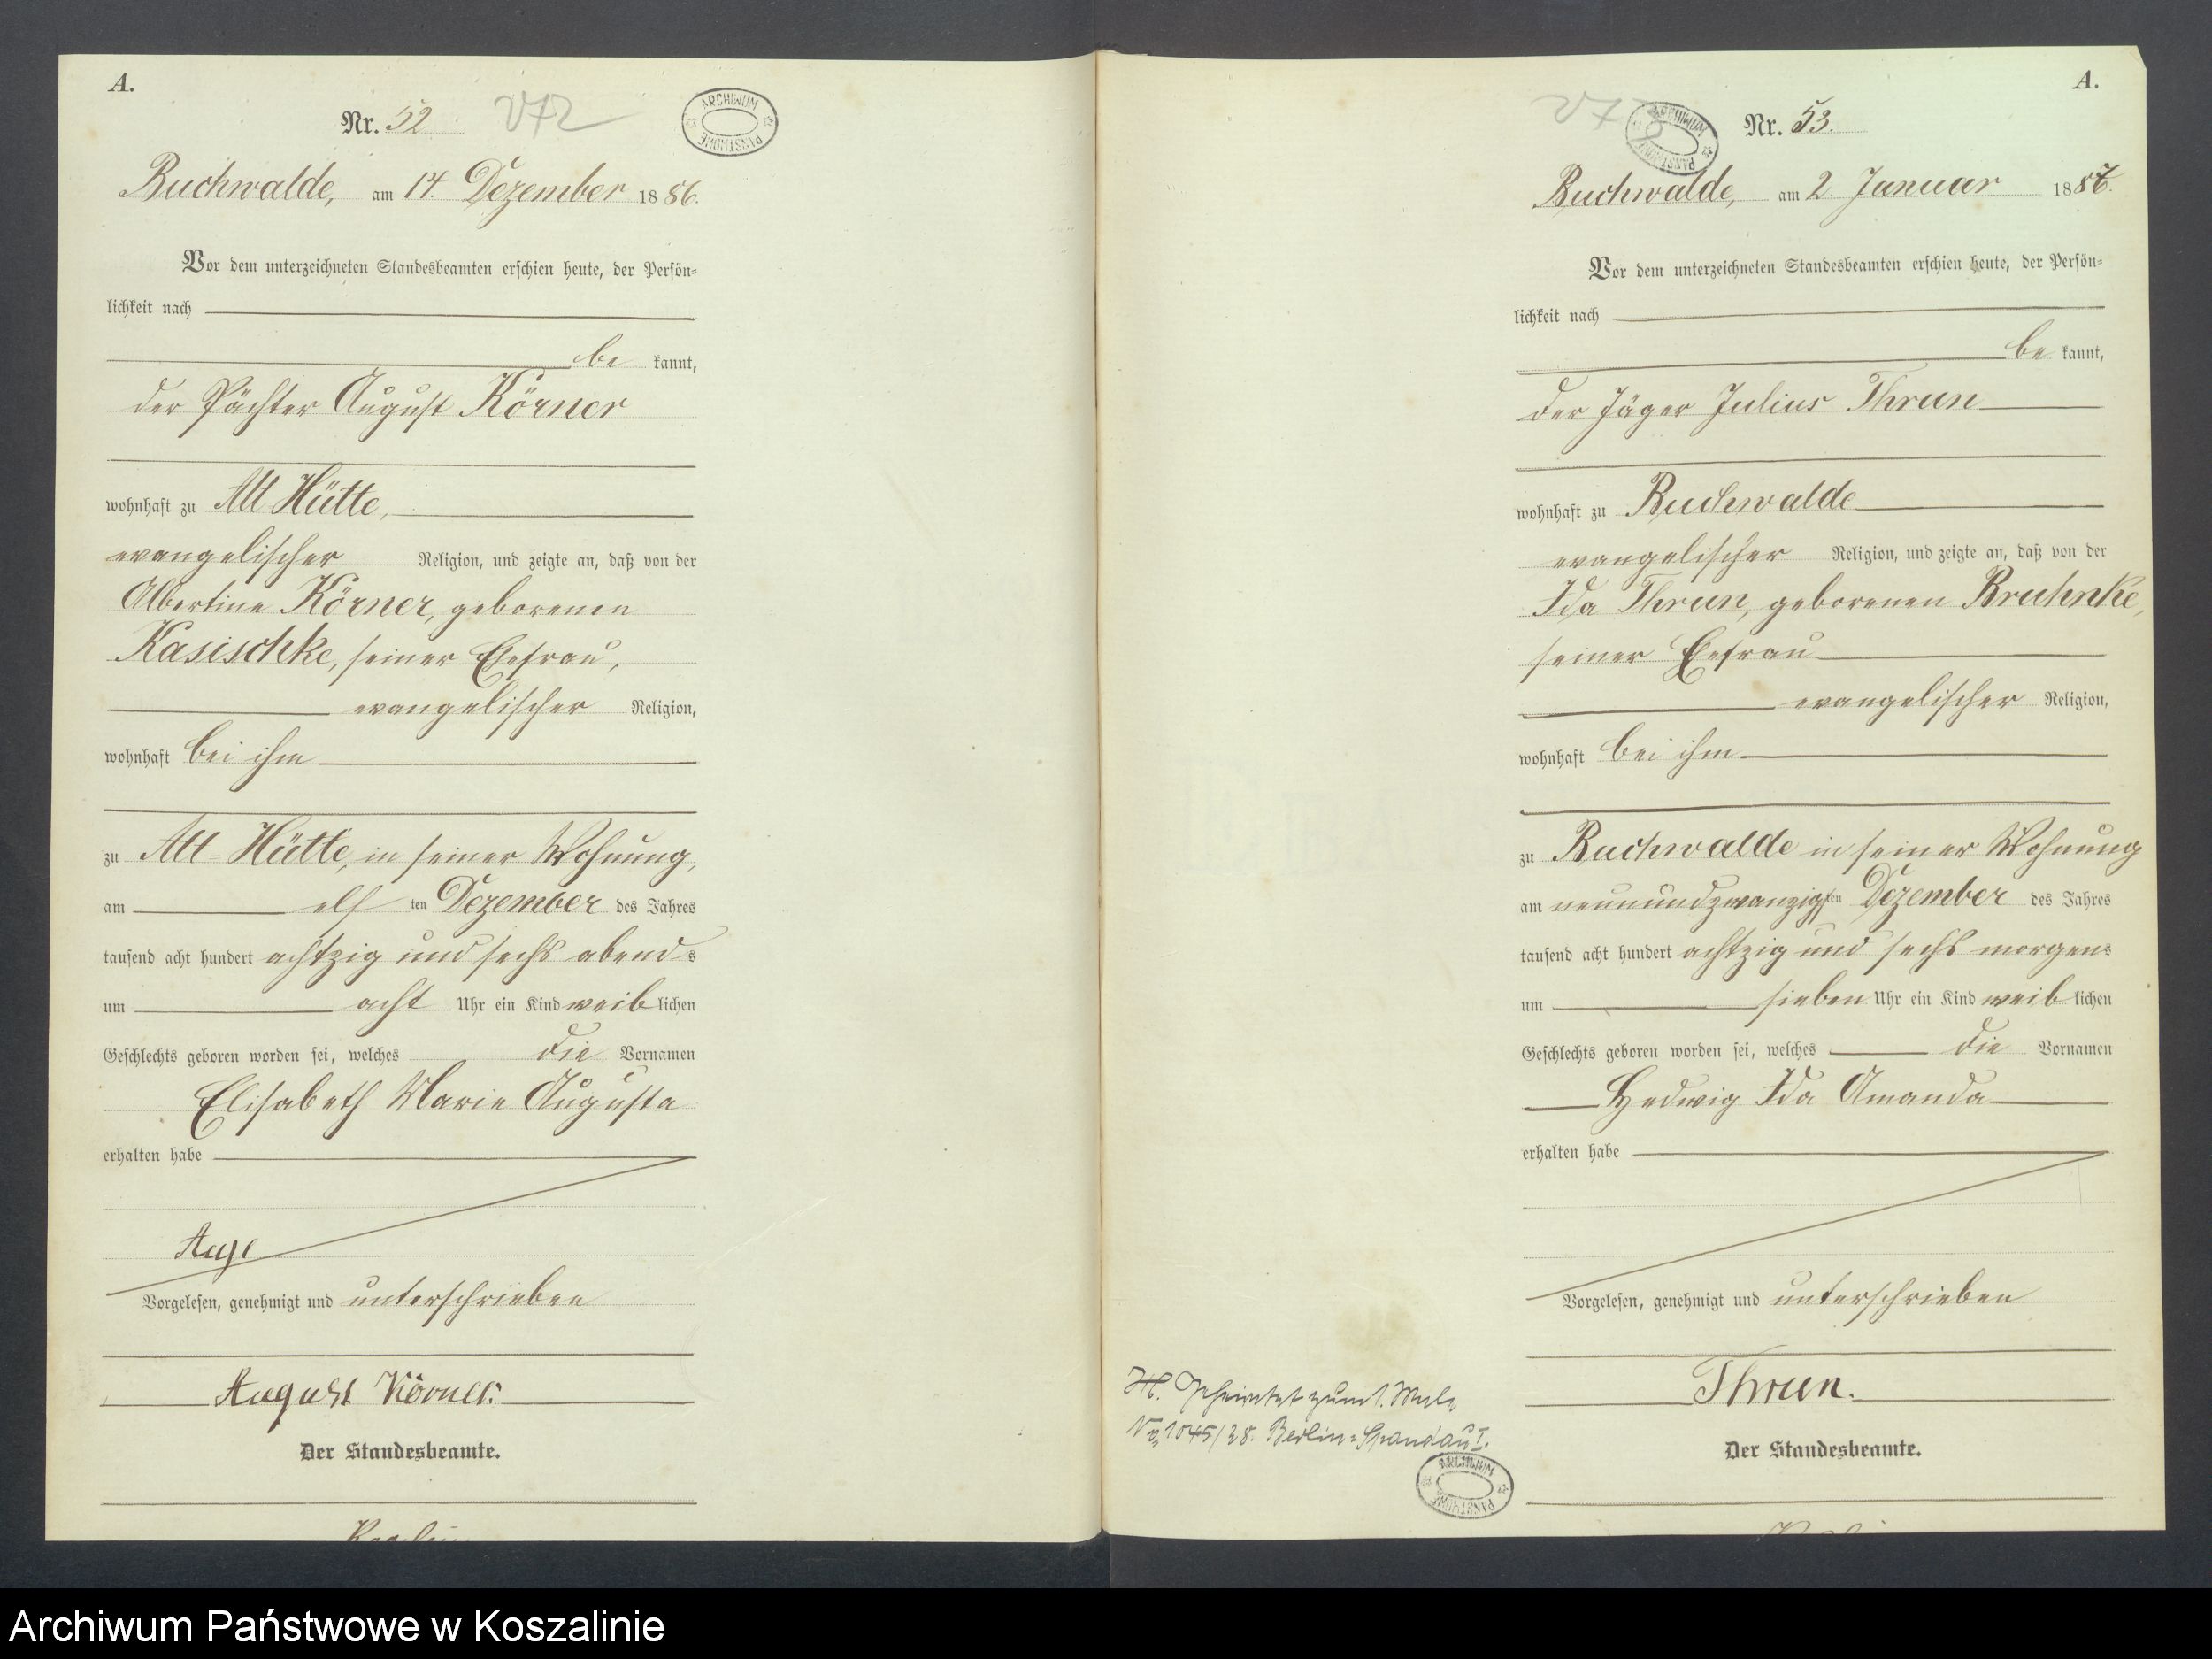 A.
Nr. 52
V72
ARCHIWUM PAŃSTWOWE
Buchwalde, am 14. Dezember 1886.
Vor dem unterzeichneten Standesbeamten erschien heute, der Persön=
lichkeit nach
be kannt,
der Pächter August Körner
wohnhaft zu Alt Hütte,
evangelischer Religion, und zeigte an, daß von der
Albertine Körner, geborenen
Kasischke, seiner Ehefrau,
evangelischer Religion,
wohnhaft bei ihm
zu Alt=Hütte, in seiner Wohnung,
am elf ten Dezember des Jahres
tausend acht hundert achtzig und sechs abends
um acht Uhr ein Kind weiblichen
Geschlechts geboren worden sei, welches die Vornamen
Elisabeth Marie Augusta
erhalten habe
Vorgelesen, genehmigt und unterschrieben
August Körner.
Der Standesbeamte.
A.
Nr. 53.
ARCHIWUM PAŃSTWOWE
Buchwalde, am 2. Januar 188
Vor dem unterzeichneten Standesbeamten erschien heute, der Persön=
lichkeit nach
be kannt,
der Jäger Julius Thrun
wohnhaft zu Buchwalde
evangelischer Religion, und zeigte an, daß von der
Ida Thrun, geborenen Bruhnke,
seiner Ehefrau
evangelischer Religion,
wohnhaft bei ihm
zu Buchwalde in seiner Wohnung
am neunundzwanzigsten Dezember des Jahres
tausend acht hundert achtzig und sechs morgens
um sieben Uhr ein Kind weiblichen
Geschlechts geboren worden sei, welches die Vornamen
Hedwig Ida Amanda
erhalten habe
Vorgelesen, genehmigt und unterschrieben
Thrun.
Der Standesbeamte.
Geheiratet zum 1. Male
Nr. 1045/28. Berlin=Spandau I.
ARCHIWUM PAŃSTWOWE
Archiwum Państwowe w Koszalinie